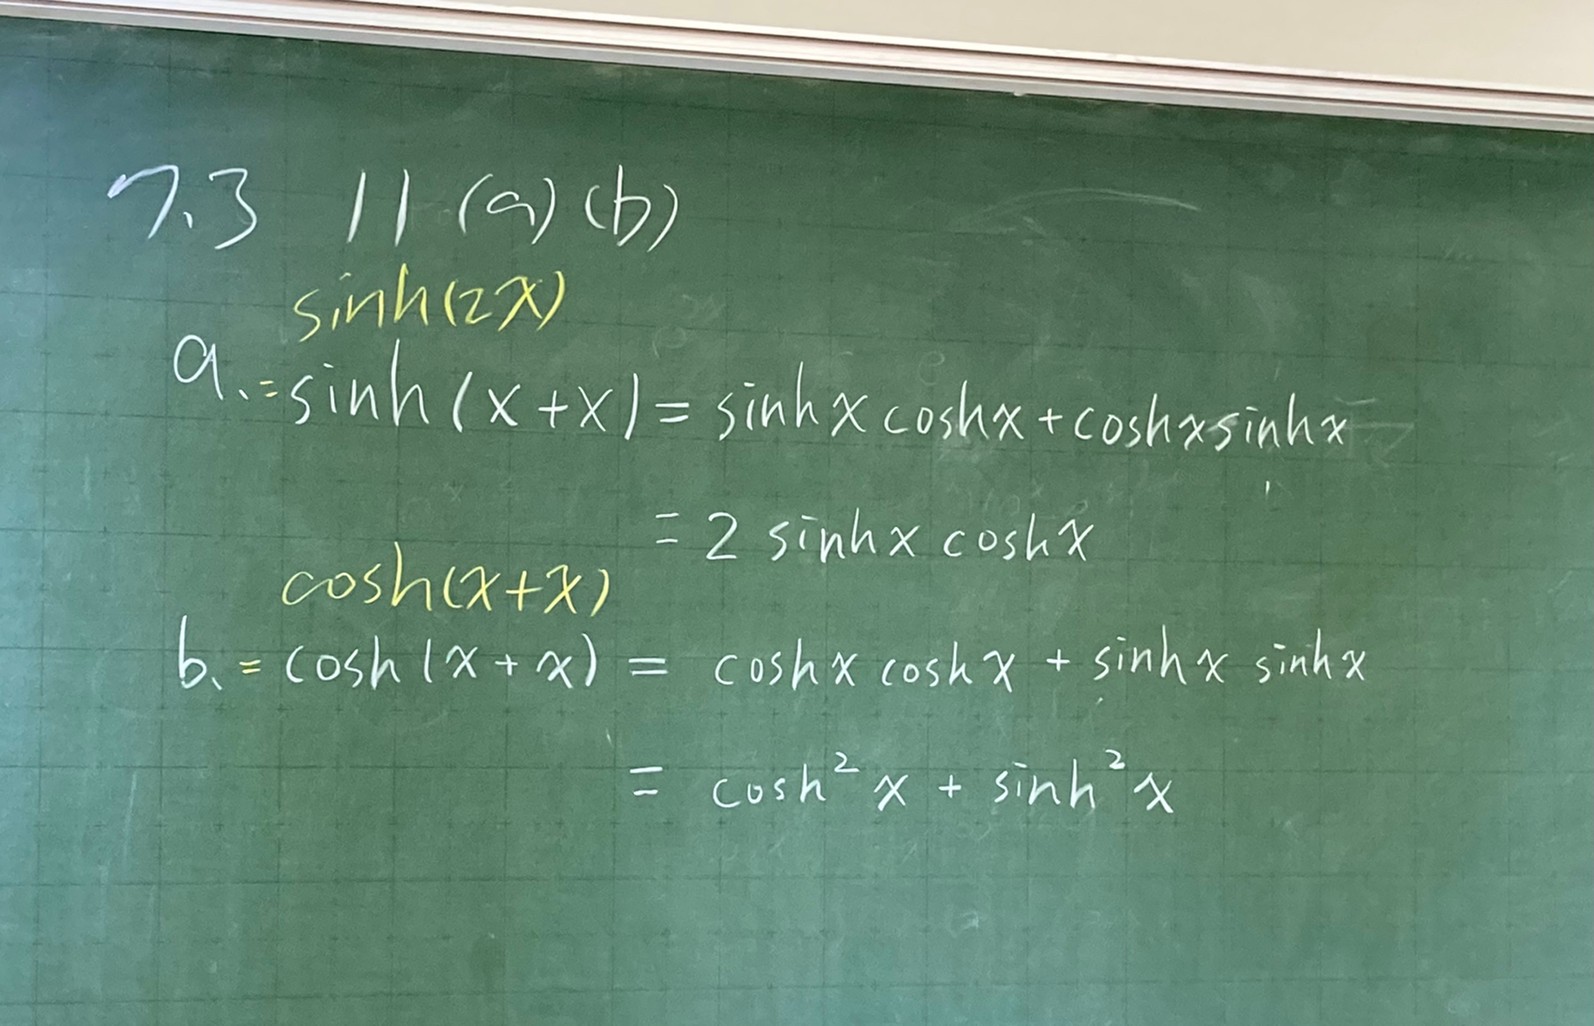 7.3 11 (a) (b)
sinh(2x)
a. = sinh(x+x) = sinhx coshx + coshx sinhx
= 2 sinhx coshx
cosh(x+x)
b. = cosh(x+x) = coshx coshx + sinhx sinhx
= cosh²x + sinh²x